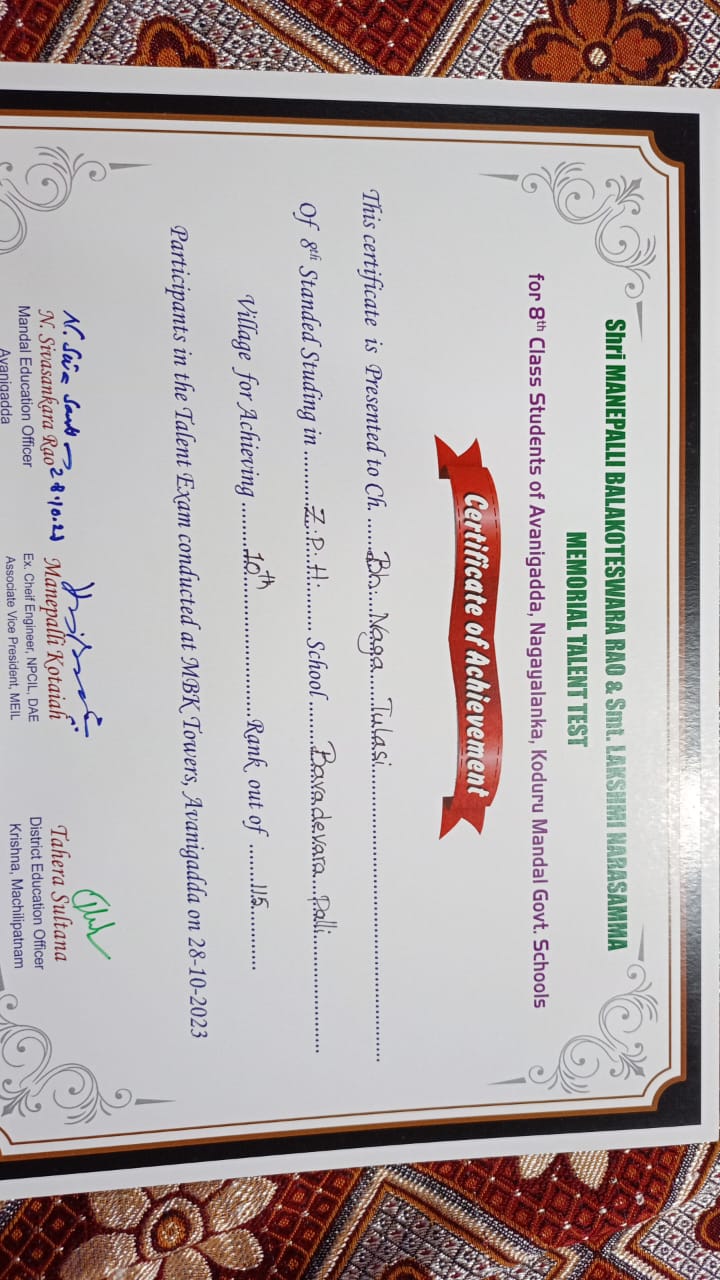 Shri MANEPALLI BALAKOTESWARA RAO & Smt. LAKSHMI NARASAMMA
MEMORIAL TALENT TEST
for 8th Class Students of Avanigadda, Nagayalanka, Koduru Mandal Govt. Schools
Certificate of Achievement
This certificate is Presented to Ch. ......Bh. Naga Tulasi..........
Of 8th Standed Studing in ..........Z.P.H.......... School ..........Bavadevara Palli..........
Village for Achieving ........10th.......... Rank out of ........115..........
Participants in the Talent Exam conducted at MBK Towers, Avanigadda on 28-10-2023
28.10.23
N. Sivasankara Rao
Mandal Education Officer
Avanigadda
Manepalli Kotaiah
Ex. Cheif Engineer, NPCIL, DAE
Associate Vice President, MEIL
Tahera Sultana
District Education Officer
Krishna, Machilipatnam